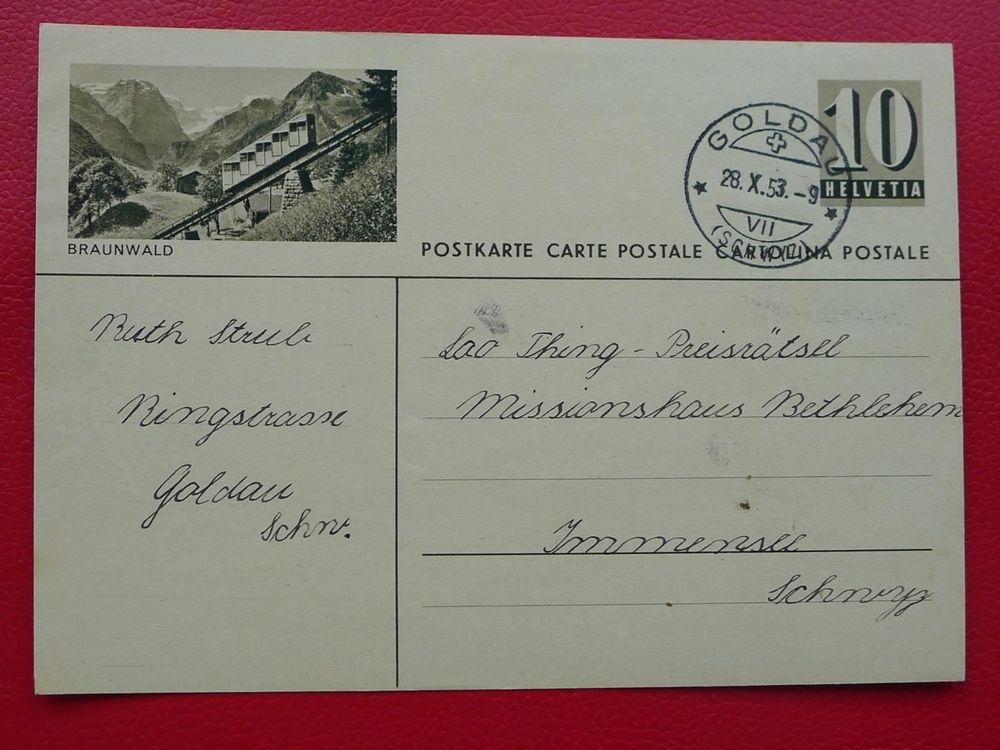 BRAUNWALD
10
HELVETIA
GOLDAU
28.X.53.-9
VII
(SCHWYZ)
POSTKARTE CARTE POSTALE CARTOLINA POSTALE
Ruth Strub
Ringstrasse
Goldau
Schw.
Lao Thing - Preisrätsel
Missionshaus Bethlehem
Immensee
Schwyz